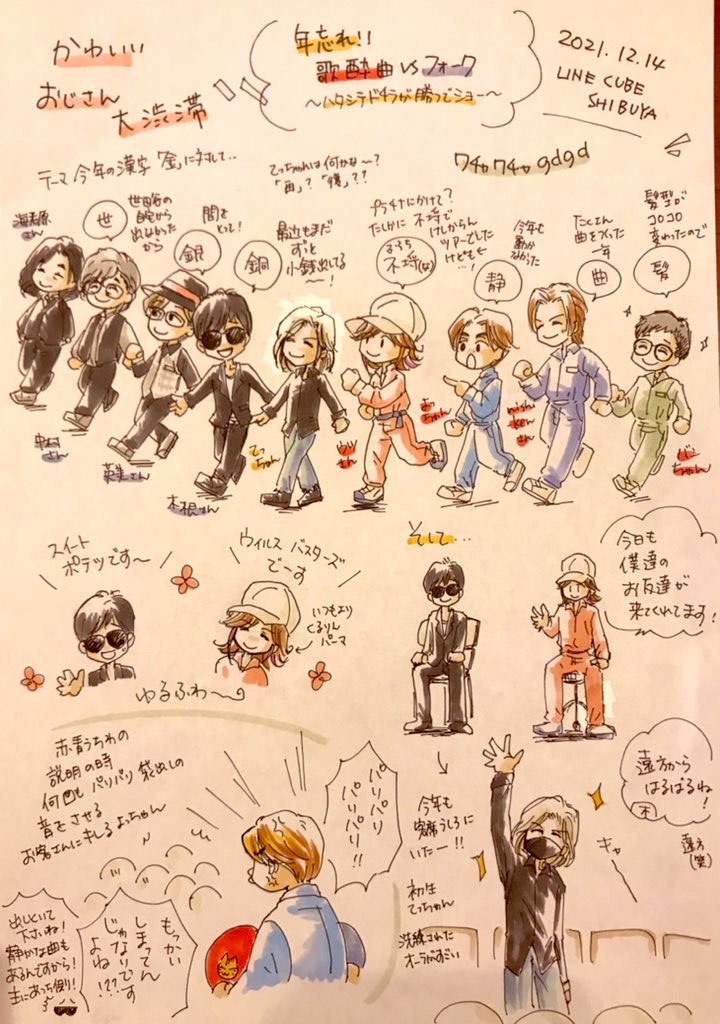 かわいい
おじさん
大渋滞
年忘れ!!
歌酔曲 VS フォーク
〜ハタシテドチラが勝つでショー〜
2021.12.14
LINE CUBE
SHIBUYA
テーマ 今年の漢字「金」に対して…
てっちゃんは何かな〜?
「苗」?「僕」??
ワチャワチャ gdgd
海老原
さん
世
世田谷の
自宅から
出なかった
から
銀
間を
とって!
銅
最近もまだ
ずっと
小銭出してる
〜!
プラチナにかけて?
たしかに 不埒で
けしからん
ツアーでした
けども
…!
ふらち
不埒(な)
今年も
動か
なかった
静
たくさん
曲をつくった
一年
曲
髪型が
コロコロ
変わったので
髪
中村
さん
英美さん
木根さん
てっ
ちゃん
ウツ
さん
よっ
ちゃん
nishi
ken
さん
バー
ちゃん
スイート
ポテツです〜
ウイルス バスターズ
でーす
いつもより
くるりん
パーマ
ゆるふわ〜
そして…
今日も
僕達の
お友達が
来てくれてます!
赤青うちわの
説明の時
何回も パリパリ 袋めしの
音をさせる
お客さんにキレるよっちゃん
パリパリ
パリパリ!!
もっかい
しまってん
じゃないです
よね!???
出しといて
下さいね!
静かな曲も
あるんですから!
主にあっち側!
今年も
客席うしろに
いたー!!
初生
てっちゃん
洗練された
オーラがすごい
遠方から
はるばるね!
木
キャー
遠方
(笑)